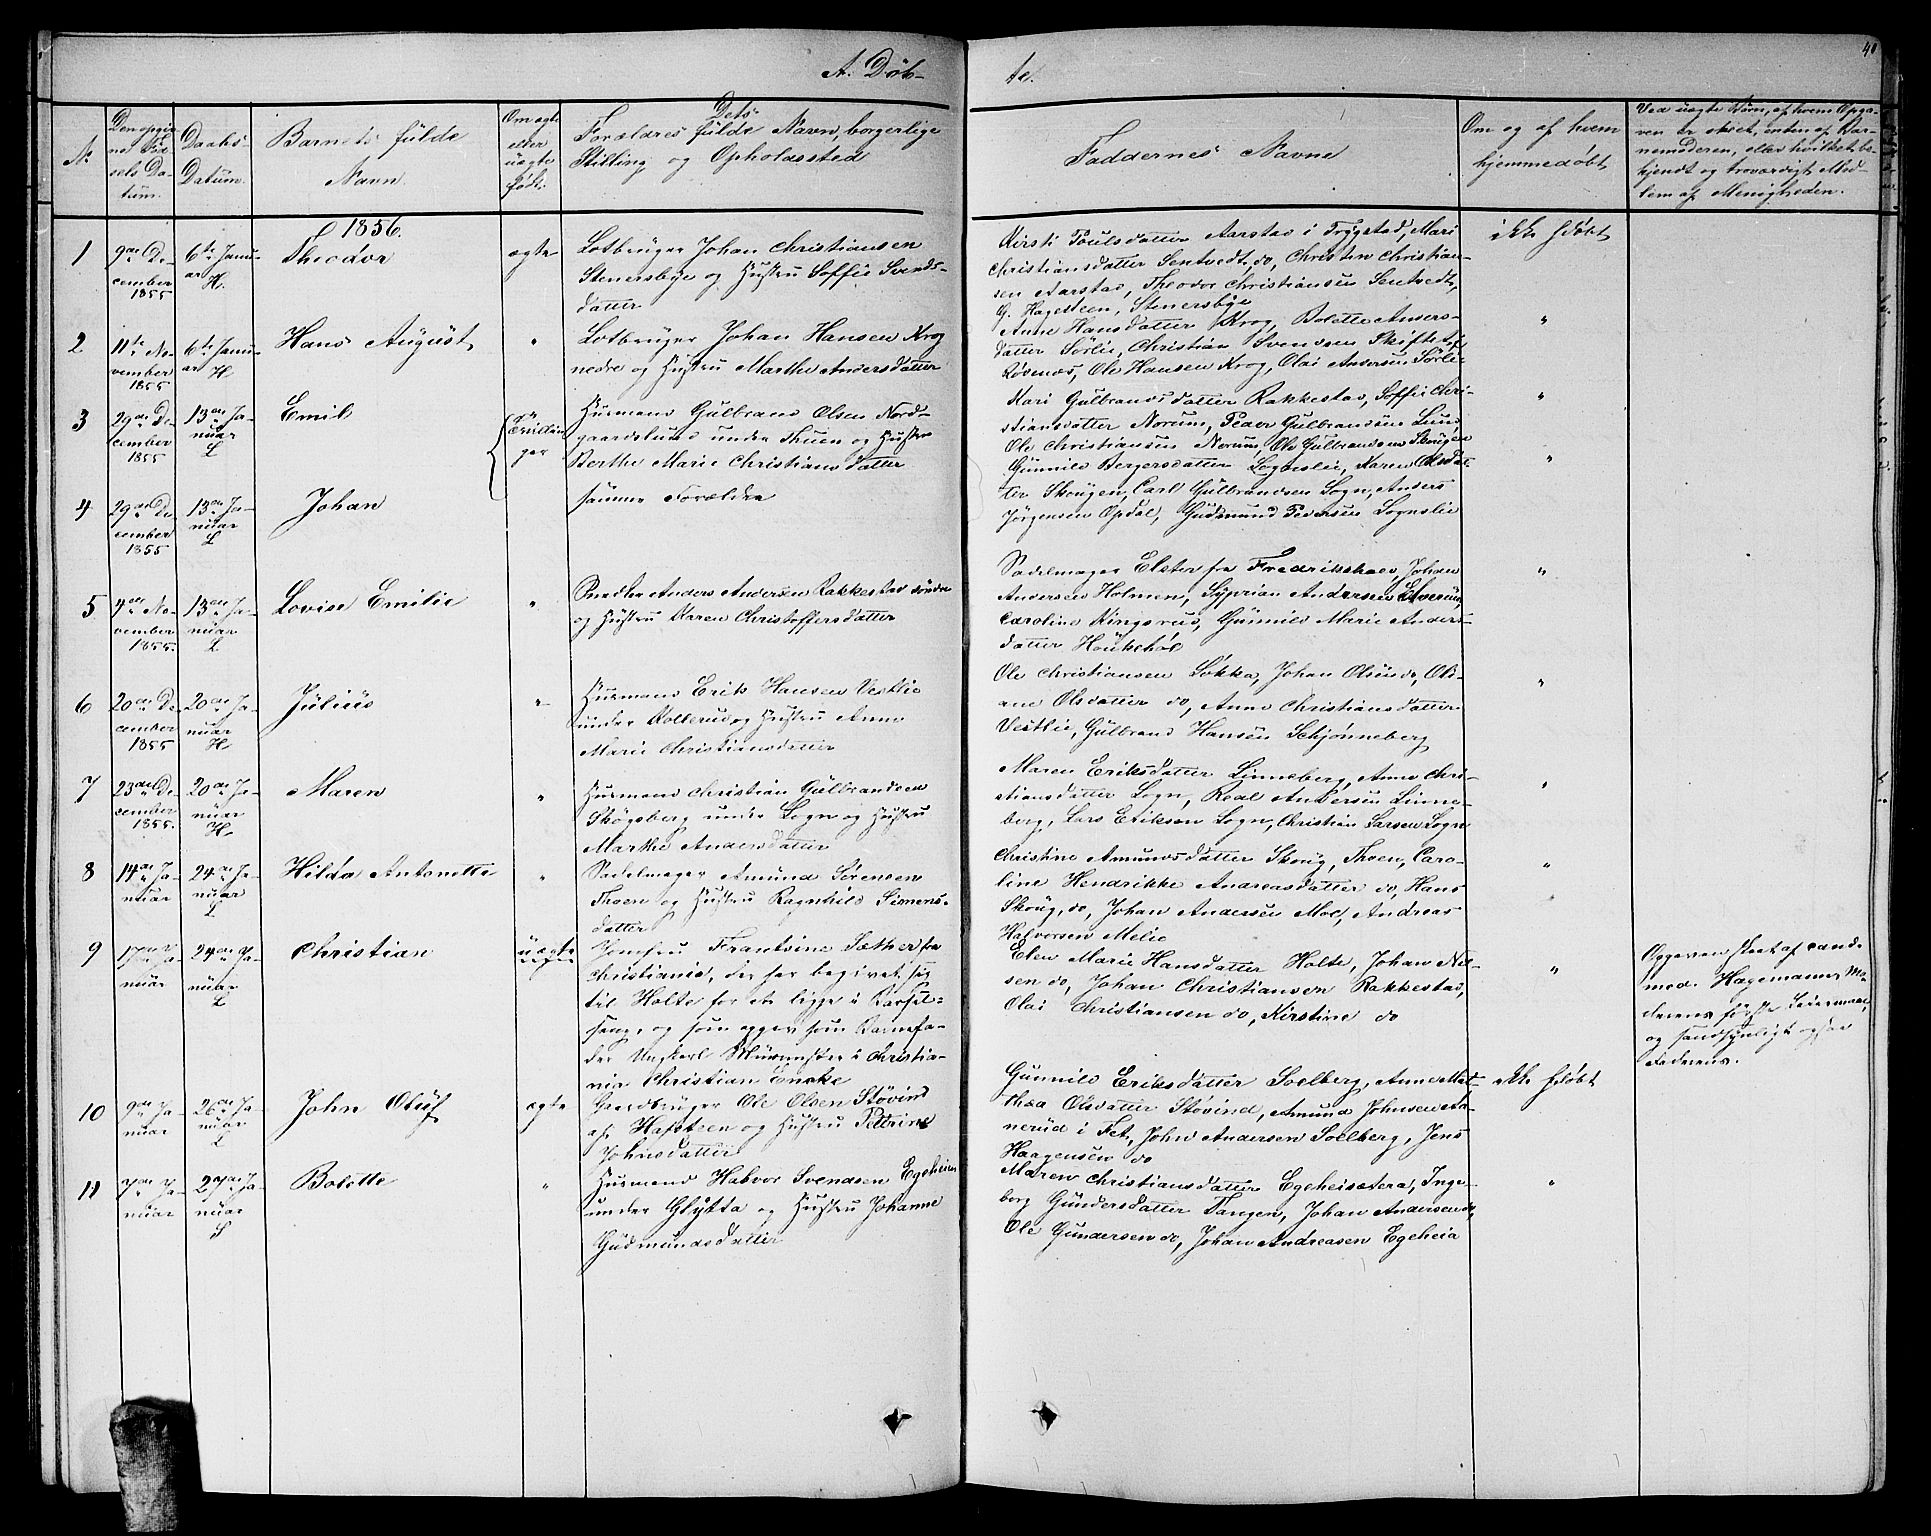 A. Døb-
te.
40
N.
Den opgiv-
ne Fød-
sels Da-
tum.
Daabs-
Datum.
Barnets fulde
Navn.
Om ægte
eller
uægte
født.
Dets
Forældres fulde Navn, borgerlige
Stilling og Opholdssted
Faddernes Navne
Om og af hvem
hjemmedøbt
Ved uægte Børn, af hvem Opga-
ven er skeet, enten af Bar-
nemoderen, eller hvilket be-
kjendt og troværdigt Med-
lem af Menigheden.
1856.
1
9de De-
cember
1855
6te Janu-
ar
H.
Theodor
ægte
Lotbruger Johan Christiansen
Stenersbye og Hustru Soffie Svends-
datter
Kirsti Poulsdatter Aarstad i Trygstad, Mari
Christiansdatter Sentvedt, do, Christen Christian-
sen Aarstad, Theodor Christiansen Sentvedt,
G. Hagesteen, Stenersbye
ikke hdøbt
2
11te No-
vember
1855
6te Janu-
ar H
Hans August
"
Lotbruger Johan Hansen Krog
nedre og Hustru Marthe Andersdatter
Anne Hansdatter Krog, Bolette Anders-
datter Sørlie, Christian Svendsen
Løvenæs, Ole Hansen Krog, Olai Andersen Sørlie
"
3
29de De-
cember
1855
13de Ja-
nuar
L
Emil
Tvillin-
ger
Husmand Gulbrand Olsen Nord-
gaardslund under Thuen og Hustru
Berthe Marie Christiansdatter
Kari Gulbrandsdatter Rakkestad, Soffie Chri-
stiansdatter Norum, Peder Gulbrandsen Lund,
Ole Christiansen Norum, Ole Gulbrandsen Skougen
"
4
29de De-
cember
1855
13de Ja-
nuar
L
Johan
samme Forældre
Gunnild Bergersdatter Sognslie, Karen Olsdat-
ter Skougen, Carl Gulbrandsen Sogn, Anders
Jørgensen Opdal, Gudmund Pedersen Sognslie
"
5
4de No-
vember
1855.
13de Ja-
nuar
L.
Lovise Emilie
"
Anders Andersen Rakkestad søndre
og Hustru Karen Christoffersdatter
Sadelmager Elster fra Fredrikshald, Johan
Andersen Holmen, Syprian Andersen
Caroline Ringsrud, Gunnild Marie Anders-
datter Houkehol
"
6
20de De-
cember
1855
20de Ja-
nuar
H
Julius
"
Husmand Erik Hansen Vestlie
under Kollerud og Hustru Anne
Marie Christiansdatter
Ole Christiansen Løkka, Johan Olsen do, Oli-
ane Olsdatter do, Anne Christiansdatter
Vestlie, Gulbrand Hansen Schjønneberg
"
7
23de De-
cember
1855.
20de Ja-
nuar
H.
Maren
"
Husmand Christian Gulbrandsen
Skogsberg under Sogn og Hustru
Marthe Andersdatter
Maren Eriksdatter Linneberg, Anne Chri-
stiansdatter Sogn, Real Andersen Linne-
berg, Lars Eriksen Sogn, Christian Larsen Sogn
"
8
14de Ja-
nuar
24de Ja-
nuar
L
Hilda Antonette
"
Sadelmager Amund Sørensen
Thoen og Hustru Ragnhild Simens-
datter
Christine Amundsdatter Skoug, Thoen, Caro-
line Hendrikke Andreasdatter do, Hans
Skoug, do, Johan Andersen Moe, Andreas
Halvorsen Melie
"
9
17de Ja-
nuar
24de Ja-
nuar
L
Christian
uægte
Jomfru Frantsine Sæther fra
Christiania, der har begivet sig
til Holte for at ligge i Barsel-
seng, og som opgav som Barnefa-
der Ungkarl Muurmester i Christia-
nia Christian Encke
Elen Marie Hansdatter Holte, Johan Niel-
sen do, Johan Christiansen Rakkestad,
Olai Christiansen do, Kirstine do
"
Opgaven skeet af cand.
med. Hagemann, Mo-
derens første Leiermaal,
og sandsynligt ogsaa
Faderens.
10
9de Ja-
nuar
26de Ja-
nuar
L
John Oluf
ægte
Gaardbruger Ole Olsen Støvind
af Hafsteen og Hustru Pettrine
Johnsdatter
Gunnild Eriksdatter Soelberg, Anne Mat-
thea Olsdatter Støvind, Amund Johnsen Aa-
nerud i Fet, John Andersen Soelberg, Jens
Haagensen do
ikke hdøbt
11
7de Ja-
nuar
27de Ja-
nuar
S
Bolette
"
Husmand Halvor Svendsen Egeheien
under Glytta og Hustru Johanne
Gudmundsdatter
Maren Christiansdatter Egeheisætera, Inge-
borg Gundersdatter Tangen, Johan Andersen do,
Ole Gundersen do, Johan Andreasen Egeheia
"